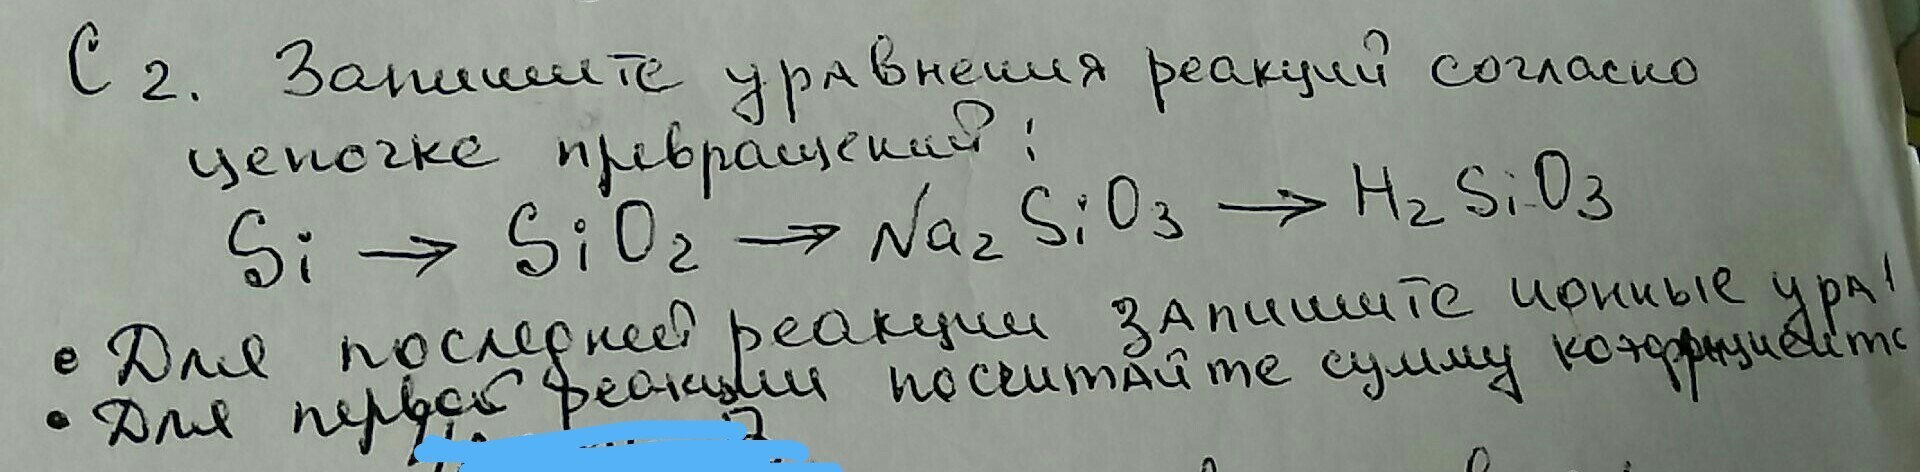 С 2. Запишите уравнения реакций согласно
цепочке превращений:
Si → SiO2 → Na2SiO3 → H2SiO3
• Для последней реакции запишите ионные ура
• Для первой реакции посчитайте сумму коэффициенто